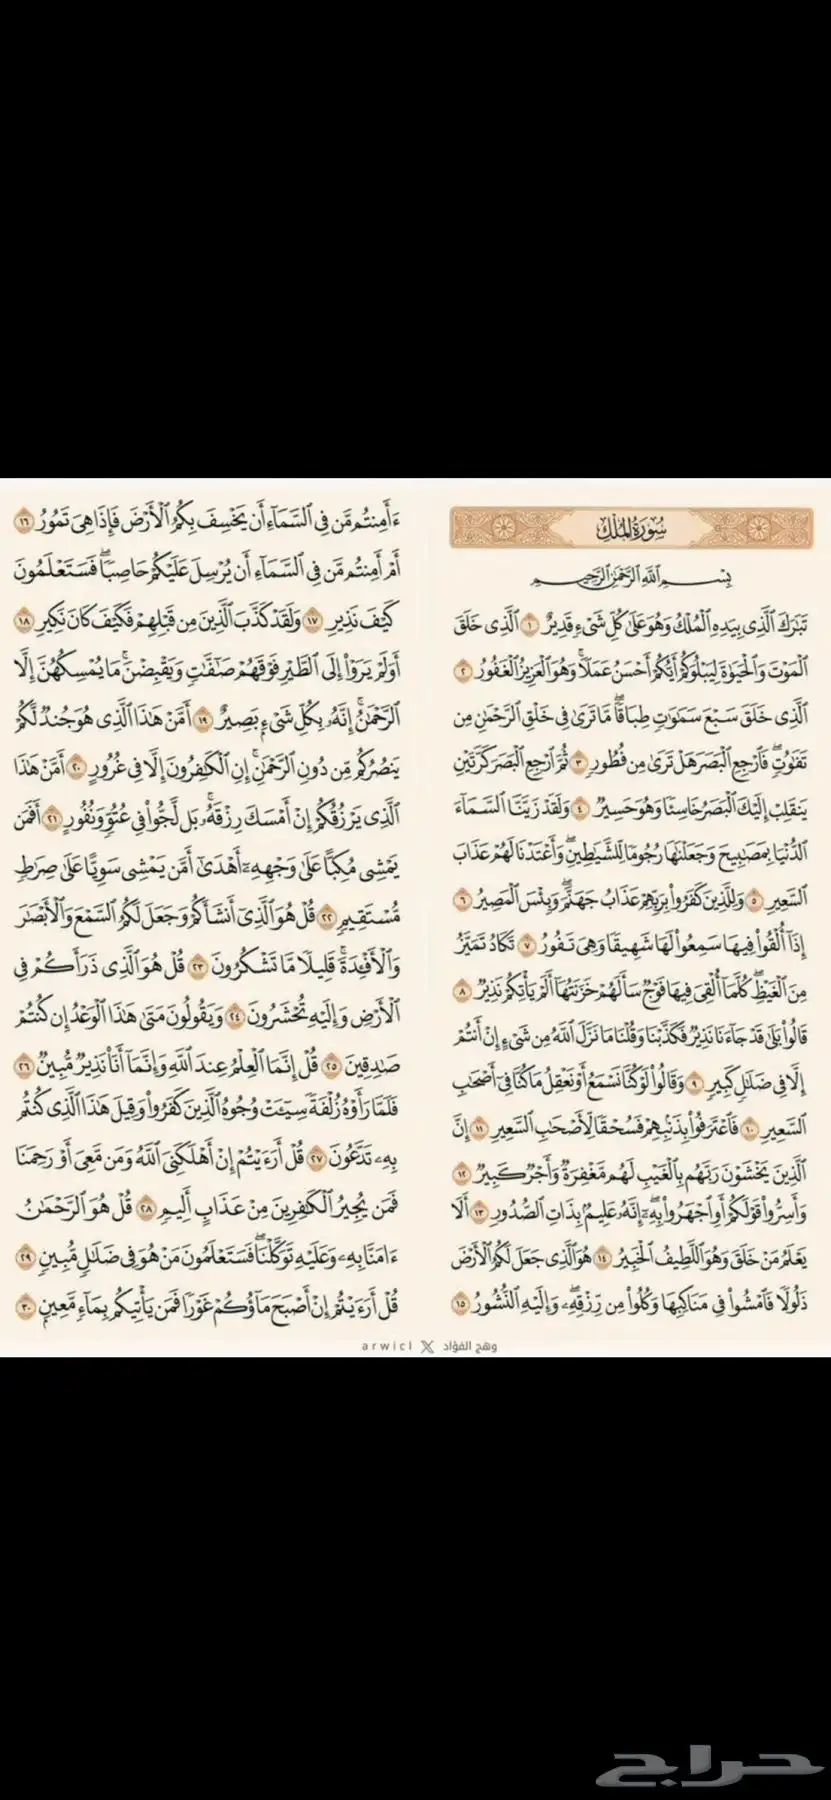 سُورَةُ المُلْكِ
بِسْمِ ٱللَّهِ ٱلرَّحْمَٰنِ ٱلرَّحِيمِ
تَبَٰرَكَ ٱلَّذِى بِيَدِهِ ٱلْمُلْكُ وَهُوَ عَلَىٰ كُلِّ شَىْءٍ قَدِيرٌ ١ ٱلَّذِى خَلَقَ
ٱلْمَوْتَ وَٱلْحَيَوٰةَ لِيَبْلُوَكُمْ أَيُّكُمْ أَحْسَنُ عَمَلًا ۚ وَهُوَ ٱلْعَزِيزُ ٱلْغَفُورُ ٢
ٱلَّذِى خَلَقَ سَبْعَ سَمَٰوَٰتٍ طِبَاقًا ۖ مَّا تَرَىٰ فِى خَلْقِ ٱلرَّحْمَٰنِ مِن
تَفَٰوُتٍ ۖ فَٱرْجِعِ ٱلْبَصَرَ هَلْ تَرَىٰ مِن فُطُورٍ ٣ ثُمَّ ٱرْجِعِ ٱلْبَصَرَ كَرَّتَيْنِ
يَنقَلِبْ إِلَيْكَ ٱلْبَصَرُ خَاسِئًا وَهُوَ حَسِيرٌ ٤ وَلَقَدْ زَيَّنَّا ٱلسَّمَآءَ
ٱلدُّنْيَا بِمَصَٰبِيحَ وَجَعَلْنَٰهَا رُجُومًا لِّلشَّيَٰطِينِ ۖ وَأَعْتَدْنَا لَهُمْ عَذَابَ
ٱلسَّعِيرِ ٥ وَلِلَّذِينَ كَفَرُوا۟ بِرَبِّهِمْ عَذَابُ جَهَنَّمَ ۖ وَبِئْسَ ٱلْمَصِيرُ ٦
إِذَآ أُلْقُوا۟ فِيهَا سَمِعُوا۟ لَهَا شَهِيقًا وَهِىَ تَفُورُ ٧ تَكَادُ تَمَيَّزُ
مِنَ ٱلْغَيْظِ ۖ كُلَّمَآ أُلْقِىَ فِيهَا فَوْجٌ سَأَلَهُمْ خَزَنَتُهَآ أَلَمْ يَأْتِكُمْ نَذِيرٌ ٨
قَالُوا۟ بَلَىٰ قَدْ جَآءَنَا نَذِيرٌ فَكَذَّبْنَا وَقُلْنَا مَا نَزَّلَ ٱللَّهُ مِن شَىْءٍ إِنْ أَنتُمْ
إِلَّا فِى ضَلَٰلٍ كَبِيرٍ ٩ وَقَالُوا۟ لَوْ كُنَّا نَسْمَعُ أَوْ نَعْقِلُ مَا كُنَّا فِىٓ أَصْحَٰبِ
ٱلسَّعِيرِ ١٠ فَٱعْتَرَفُوا۟ بِذَنۢبِهِمْ فَسُحْقًا لِّأَصْحَٰبِ ٱلسَّعِيرِ ١١ إِنَّ
ٱلَّذِينَ يَخْشَوْنَ رَبَّهُم بِٱلْغَيْبِ لَهُم مَّغْفِرَةٌ وَأَجْرٌ كَبِيرٌ ١٢
وَأَسِرُّوا۟ قَوْلَكُمْ أَوِ ٱجْهَرُوا۟ بِهِۦٓ ۖ إِنَّهُۥ عَلِيمٌۢ بِذَاتِ ٱلصُّدُورِ ١٣ أَلَا
يَعْلَمُ مَنْ خَلَقَ وَهُوَ ٱللَّطِيفُ ٱلْخَبِيرُ ١٤ هُوَ ٱلَّذِى جَعَلَ لَكُمُ ٱلْأَرْضَ
ذَلُولًا فَٱمْشُوا۟ فِى مَنَاكِبِهَا وَكُلُوا۟ مِن رِّزْقِهِۦ ۖ وَإِلَيْهِ ٱلنُّشُورُ ١٥
ءَأَمِنتُم مَّن فِى ٱلسَّمَآءِ أَن يَخْسِفَ بِكُمُ ٱلْأَرْضَ فَإِذَا هِىَ تَمُورُ ١٦
أَمْ أَمِنتُم مَّن فِى ٱلسَّمَآءِ أَن يُرْسِلَ عَلَيْكُمْ حَاصِبًا ۖ فَسَتَعْلَمُونَ
كَيْفَ نَذِيرِ ١٧ وَلَقَدْ كَذَّبَ ٱلَّذِينَ مِن قَبْلِهِمْ فَكَيْفَ كَانَ نَكِيرِ ١٨
أَوَلَمْ يَرَوْا۟ إِلَى ٱلطَّيْرِ فَوْقَهُمْ صَٰٓفَّٰتٍ وَيَقْبِضْنَ ۚ مَا يُمْسِكُهُنَّ إِلَّا
ٱلرَّحْمَٰنُ ۚ إِنَّهُۥ بِكُلِّ شَىْءٍۭ بَصِيرٌ ١٩ أَمَّنْ هَٰذَا ٱلَّذِى هُوَ جُندٌ لَّكُمْ
يَنصُرُكُم مِّن دُونِ ٱلرَّحْمَٰنِ ۚ إِنِ ٱلْكَٰفِرُونَ إِلَّا فِى غُرُورٍ ٢٠ أَمَّنْ هَٰذَا
ٱلَّذِى يَرْزُقُكُمْ إِنْ أَمْسَكَ رِزْقَهُۥ ۚ بَل لَّجُّوا۟ فِى عُتُوٍّ وَنُفُورٍ ٢١ أَفَمَن
يَمْشِى مُكِبًّا عَلَىٰ وَجْهِهِۦٓ أَهْدَىٰٓ أَمَّن يَمْشِى سَوِيًّا عَلَىٰ صِرَٰطٍ
مُّسْتَقِيمٍ ٢٢ قُلْ هُوَ ٱلَّذِىٓ أَنشَأَكُمْ وَجَعَلَ لَكُمُ ٱلسَّمْعَ وَٱلْأَبْصَٰرَ
وَٱلْأَفْـِٔدَةَ ۖ قَلِيلًا مَّا تَشْكُرُونَ ٢٣ قُلْ هُوَ ٱلَّذِى ذَرَأَكُمْ فِى
ٱلْأَرْضِ وَإِلَيْهِ تُحْشَرُونَ ٢٤ وَيَقُولُونَ مَتَىٰ هَٰذَا ٱلْوَعْدُ إِن كُنتُمْ
صَٰدِقِينَ ٢٥ قُلْ إِنَّمَا ٱلْعِلْمُ عِندَ ٱللَّهِ وَإِنَّمَآ أَنَا۠ نَذِيرٌ مُّبِينٌ ٢٦
فَلَمَّا رَأَوْهُ زُلْفَةً سِيٓـَٔتْ وُجُوهُ ٱلَّذِينَ كَفَرُوا۟ وَقِيلَ هَٰذَا ٱلَّذِى كُنتُم
بِهِۦ تَدَّعُونَ ٢٧ قُلْ أَرَءَيْتُمْ إِنْ أَهْلَكَنِىَ ٱللَّهُ وَمَن مَّعِىَ أَوْ رَحِمَنَا
فَمَن يُجِيرُ ٱلْكَٰفِرِينَ مِنْ عَذَابٍ أَلِيمٍ ٢٨ قُلْ هُوَ ٱلرَّحْمَٰنُ
ءَامَنَّا بِهِۦ وَعَلَيْهِ تَوَكَّلْنَا ۖ فَسَتَعْلَمُونَ مَنْ هُوَ فِى ضَلَٰلٍ مُّبِينٍ ٢٩
قُلْ أَرَءَيْتُمْ إِنْ أَصْبَحَ مَآؤُكُمْ غَوْرًا فَمَن يَأْتِيكُم بِمَآءٍ مَّعِينٍۭ ٣٠
وهج الفؤاد X arwici
حراج